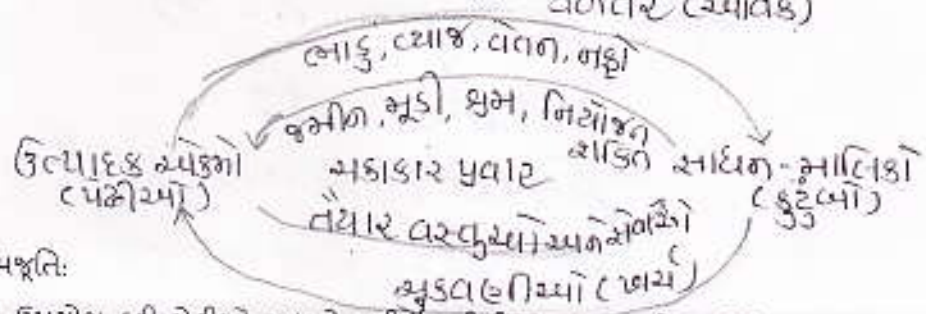 વળતર (આવક)
ભાડુ, વ્યાજ, વેતન, નફો
જમીન, મૂડી, શ્રમ, નિયોજન શક્તિ
ઉત્પાદક એકમો
(પેઢીઓ)
ચક્રાકાર પ્રવાહ
સાધન-માલિકો
(કુટુંબો)
તૈયાર વસ્તુઓ અને સેવાઓ
ચુકવણીઓ (ખર્ચ)